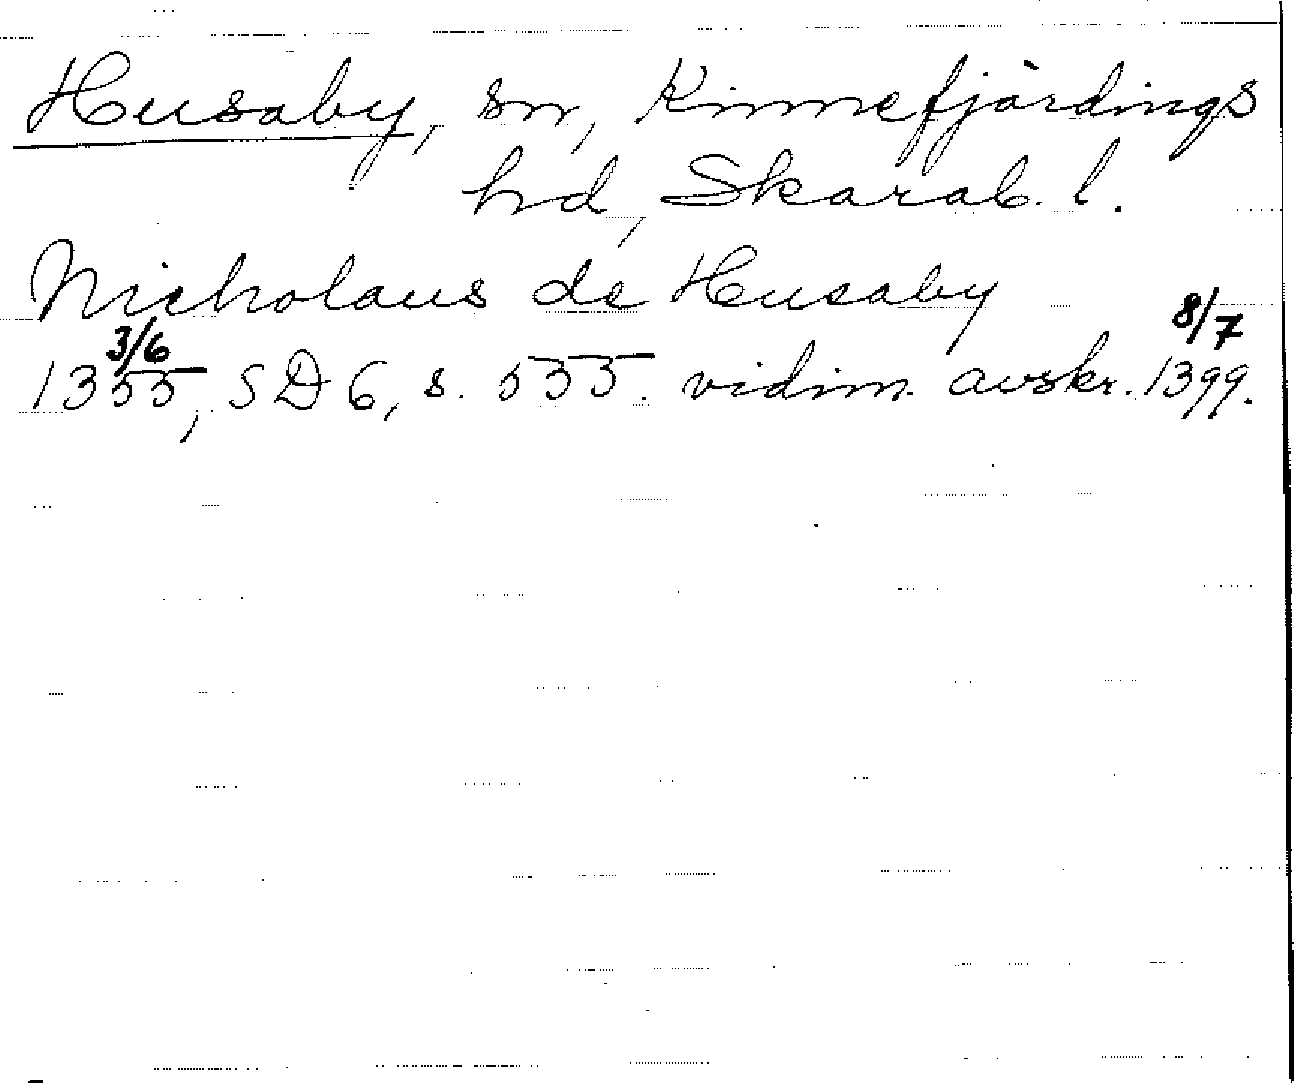 Husaby, sn, Kinnefjärdings
hd, Skarab. l.
Nicholaus de Husaby
1355 3/6, SD 6, s. 535. vidim. avskr. 1399 8/7.